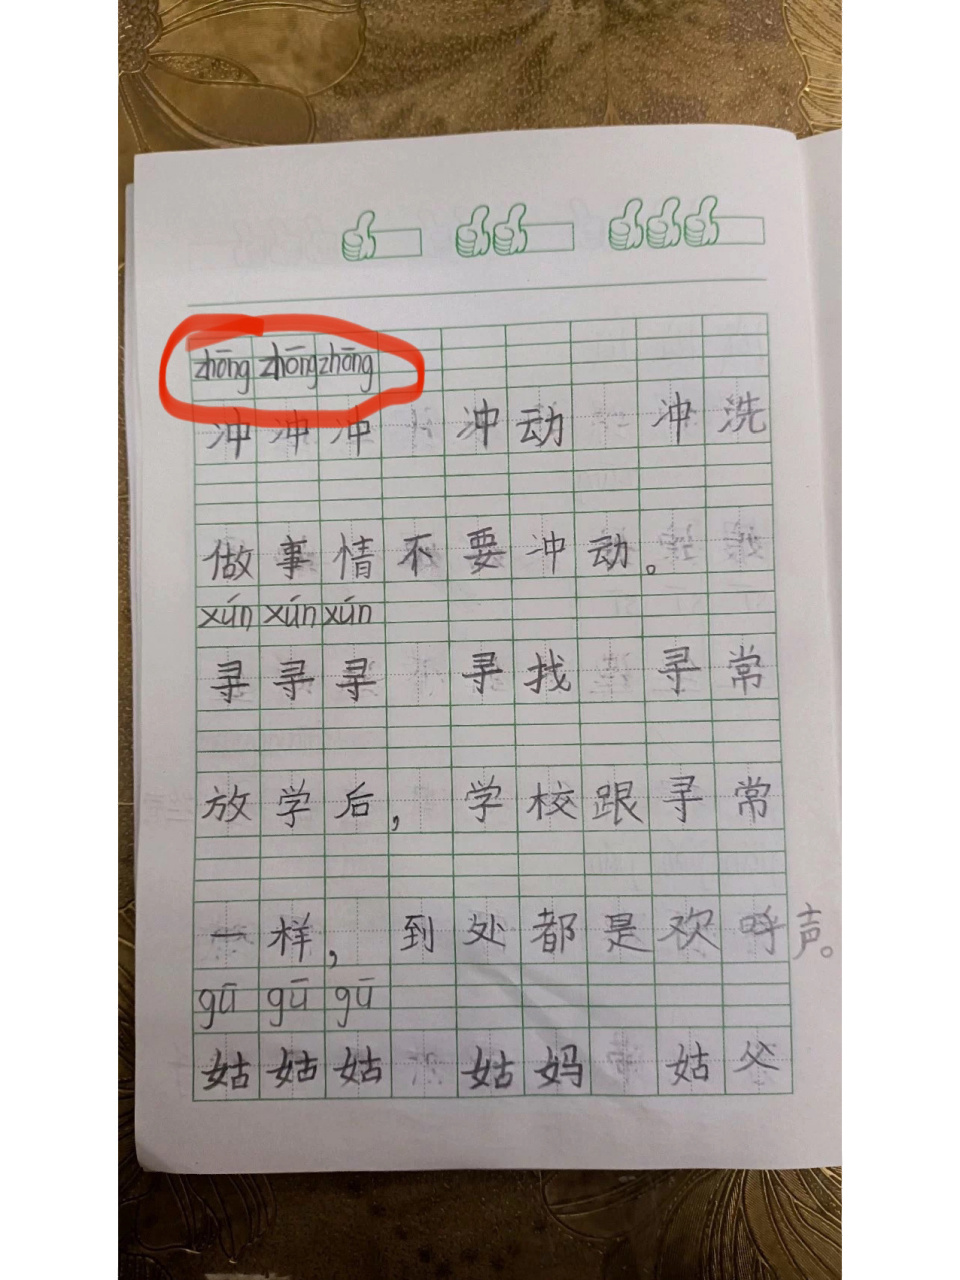 zhōng zhōng zhōng
冲 冲 冲 冲动 冲洗
做事情不要冲动。
xún xún xún
寻 寻 寻 寻找 寻常
放学后，学校跟寻常
一样，到处都是欢呼声。
gū gū gū
姑 姑 姑 姑妈 姑父